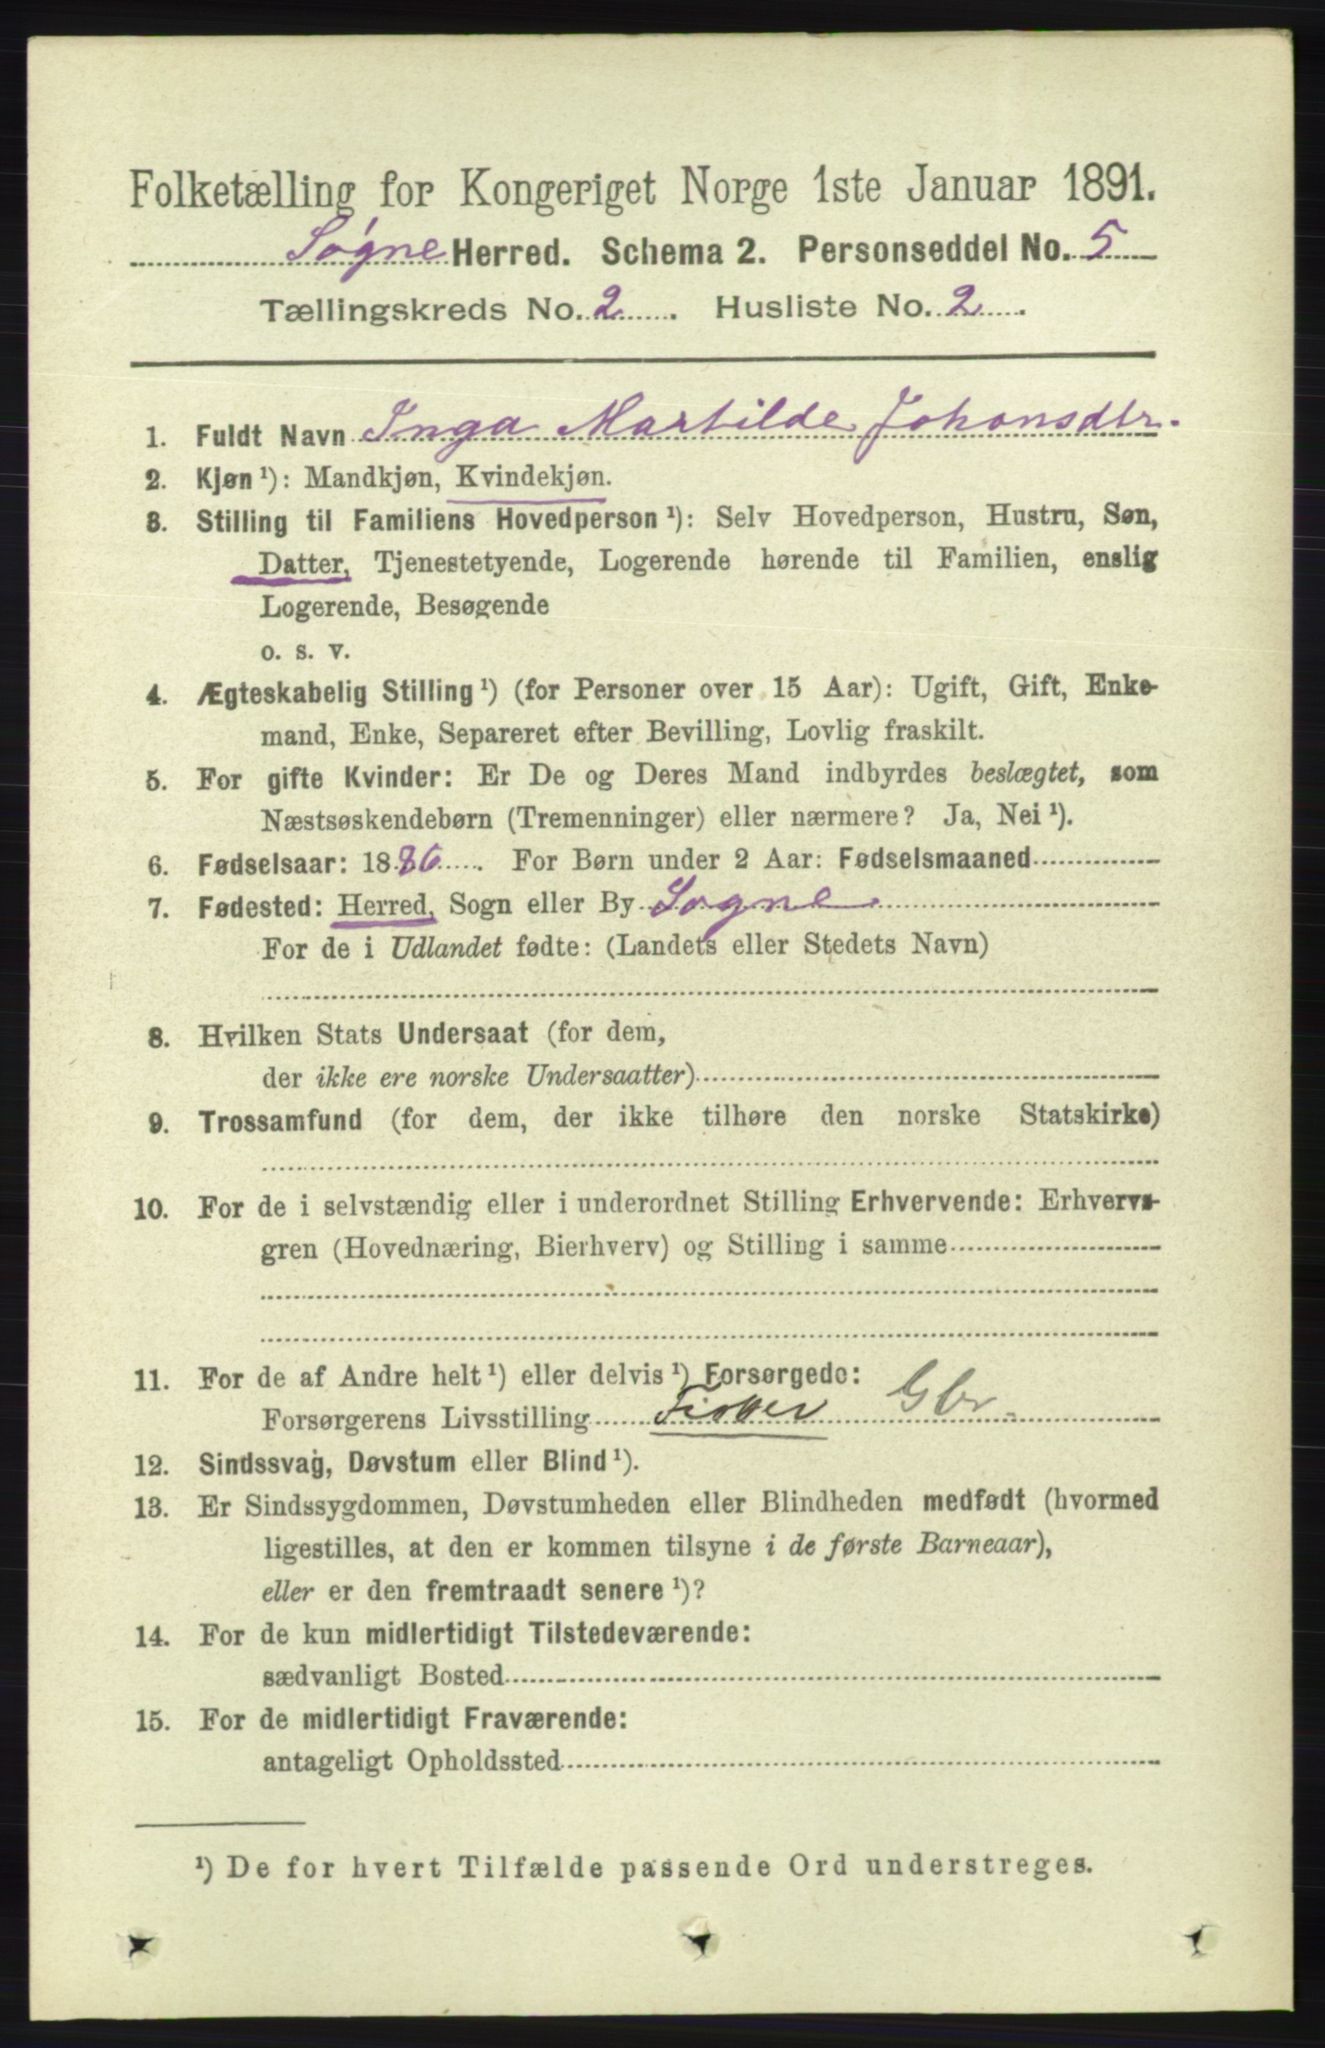 Folketælling for Kongeriget Norge 1ste Januar 1891.
Søgne Herred. Schema 2. Personseddel No. 5
Tællingskreds No. 2 . Husliste No. 2 .
1. Fuldt Navn Inga Mathilde Johansdtr.
2. Kjøn ¹): Mandkjøn, Kvindekjøn.
3. Stilling til Familiens Hovedperson ¹): Selv Hovedperson, Hustru, Søn,
Datter, Tjenestetyende, Logerende hørende til Familien, enslig
Logerende, Besøgende
o. s. v.
4. Ægteskabelig Stilling ¹) (for Personer over 15 Aar): Ugift, Gift, Enke-
mand, Enke, Separeret efter Bevilling, Lovlig fraskilt.
5. For gifte Kvinder: Er De og Deres Mand indbyrdes beslægtet, som
Næstsøskendebørn (Tremenninger) eller nærmere? Ja, Nei ¹).
6. Fødselsaar: 1886 . For Børn under 2 Aar: Fødselsmaaned
7. Fødested: Herred, Sogn eller By Sogne
For de i Udlandet fødte: (Landets eller Stedets Navn)
8. Hvilken Stats Undersaat (for dem,
der ikke ere norske Undersaatter)
9. Trossamfund (for dem, der ikke tilhøre den norske Statskirke)
10. For de i selvstændig eller i underordnet Stilling Erhvervende: Erhvervs-
gren (Hovednæring, Bierhverv) og Stilling i samme
11. For de af Andre helt ¹) eller delvis ¹) Forsørgede:
Forsørgerens Livsstilling Fisker Gbr.
12. Sindssvag, Døvstum eller Blind ¹).
13. Er Sindssygdommen, Døvstumheden eller Blindheden medfødt (hvormed
ligestilles, at den er kommen tilsyne i de første Barneaar),
eller er den fremtraadt senere ¹)?
14. For de kun midlertidigt Tilstedeværende:
sædvanligt Bosted
15. For de midlertidigt Fraværende:
antageligt Opholdssted
¹) De for hvert Tilfælde passende Ord understreges.